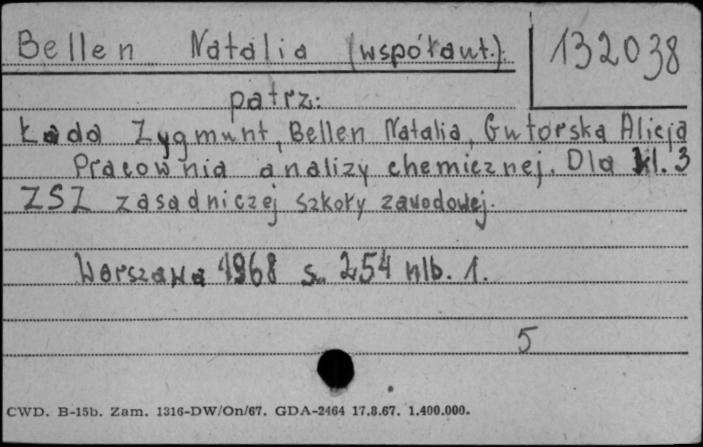 Bellen Natalia (współaut.).
132038
patrz:
Łada Zygmunt, Bellen Natalia, Gutorska Alicja
Pracownia analizy chemicznej. Dla kl. 3
ZSZ zasadniczej szkoły zawodowej.
Warszawa 1968 s. 254 nlb. 1.
5
CWD. B-15b. Zam. 1316-DW/On/67. GDA-2464 17.8.67. 1.400.000.